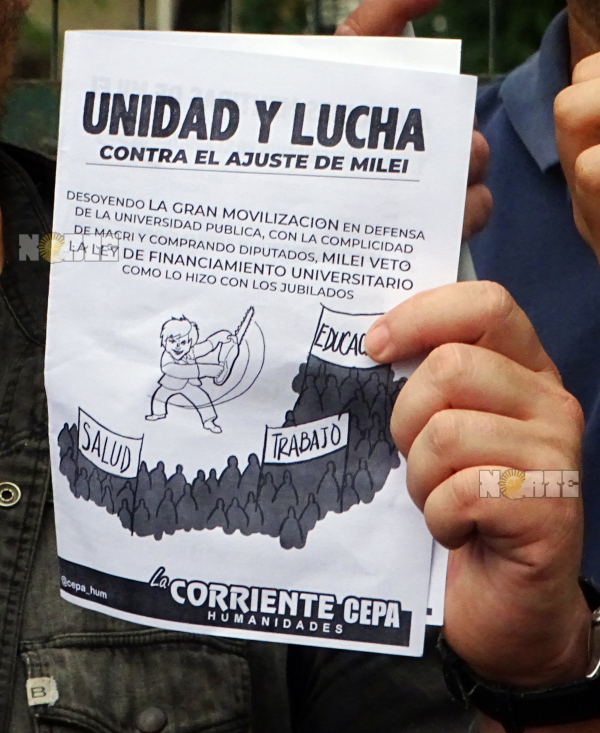 UNIDAD Y LUCHA
CONTRA EL AJUSTE DE MILEI
DESOYENDO LA GRAN MOVILIZACION EN DEFENSA
DE LA UNIVERSIDAD PUBLICA, CON LA COMPLICIDAD
DE MACRI Y COMPRANDO DIPUTADOS, MILEI VETO
LA LEY DE FINANCIAMIENTO UNIVERSITARIO
COMO LO HIZO CON LOS JUBILADOS
NORTE
EDUCAC
SALUD
TRABAJO
NORTE
@cepa_hum
La CORRIENTE CEPA
HUMANIDADES
B